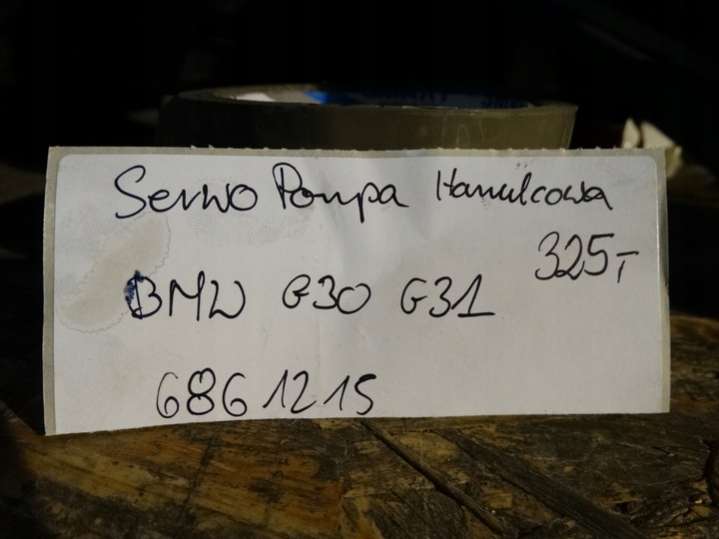 Serwo Pompa Hamulcowa
325T
BMW G30 G31
6861215